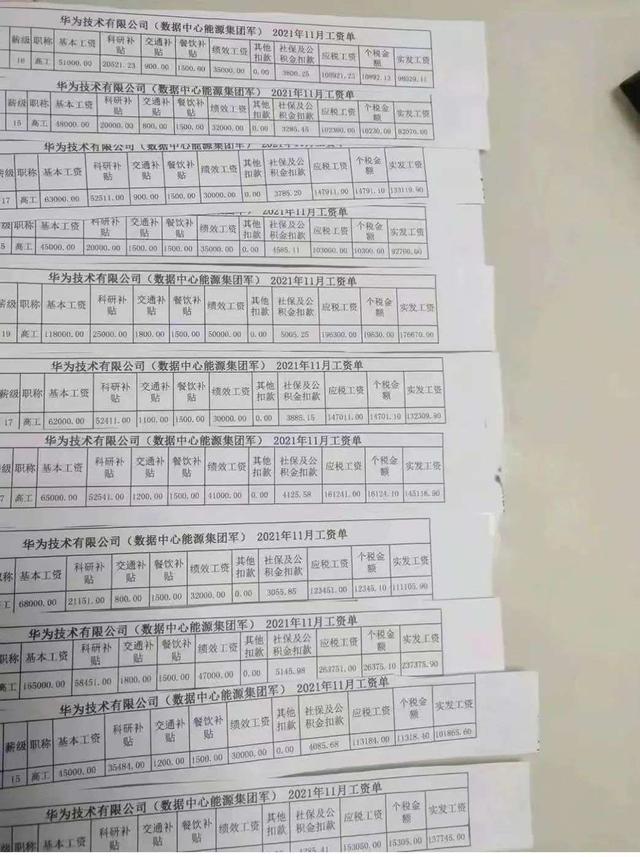 华为技术有限公司（数据中心能源集团军） 2021年11月工资单
薪级 职称 基本工资 科研补贴 交通补贴 餐饮补贴 绩效工资 其他扣款 社保及公积金扣款 应税工资 个税金额 实发工资
16 高工 51000.00 20521.23 900.00 1500.00 35000.00 0.00 108921.23 10892.12 98029.11
华为技术有限公司（数据中心能源集团军） 2021年11月工资单
薪级 职称 基本工资 科研补贴 交通补贴 餐饮补贴 绩效工资 其他扣款 社保及公积金扣款 应税工资 个税金额 实发工资
15 高工 48000.00 20000.00 800.00 1500.00 32000.00 0.00 3285.45 102300.00 10230.00 92070.00
华为技术有限公司（数据中心能源集团军） 2021年11月工资单
薪级 职称 基本工资 科研补贴 交通补贴 餐饮补贴 绩效工资 其他扣款 社保及公积金扣款 应税工资 个税金额 实发工资
17 高工 63000.00 52511.00 900.00 1500.00 30000.00 0.00 3785.20 147911.00 14791.10 133119.90
2021年11月工资单
薪级 职称 基本工资 科研补贴 交通补贴 餐饮补贴 绩效工资 其他扣款 社保及公积金扣款 应税工资 个税金额 实发工资
5 高工 45000.00 20000.00 1500.00 1500.00 35000.00 0.00 4585.11 103000.00 10300.00 92700.00
华为技术有限公司（数据中心能源集团军） 2021年11月工资单
薪级 职称 基本工资 科研补贴 交通补贴 餐饮补贴 绩效工资 其他扣款 社保及公积金扣款 应税工资 个税金额 实发工资
19 高工 118000.00 25000.00 1800.00 1500.00 50000.00 0.00 5005.25 196300.00 19630.00 176670.00
华为技术有限公司（数据中心能源集团军） 2021年11月工资单
薪级 职称 基本工资 科研补贴 交通补贴 餐饮补贴 绩效工资 其他扣款 社保及公积金扣款 应税工资 个税金额 实发工资
17 高工 62000.00 52411.00 1100.00 1500.00 30000.00 0.00 3885.15 147011.00 14701.10 132309.90
华为技术有限公司（数据中心能源集团军） 2021年11月工资单
级 职称 基本工资 科研补贴 交通补贴 餐饮补贴 绩效工资 其他扣款 社保及公积金扣款 应税工资 个税金额 实发工资
7 高工 65000.00 52541.00 1200.00 1500.00 41000.00 0.00 4125.58 161241.00 16124.10 145116.90
华为技术有限公司（数据中心能源集团军） 2021年11月工资单
职称 基本工资 科研补贴 交通补贴 餐饮补贴 绩效工资 其他扣款 社保及公积金扣款 应税工资 个税金额 实发工资
工 68000.00 21151.00 800.00 1500.00 32000.00 0.00 3055.85 123451.00 12345.10 111105.90
华为技术有限公司（数据中心能源集团军） 2021年11月工资单
职称 基本工资 科研补贴 交通补贴 餐饮补贴 绩效工资 其他扣款 社保及公积金扣款 应税工资 个税金额 实发工资
高工 155000.00 58451.00 1800.00 1500.00 47000.00 0.00 5145.98 263751.00 26375.10 237375.90
华为技术有限公司（数据中心能源集团军） 2021年11月工资单
薪级 职称 基本工资 科研补贴 交通补贴 餐饮补贴 绩效工资 其他扣款 社保及公积金扣款 应税工资 个税金额 实发工资
15 高工 45000.00 35484.00 1200.00 1500.00 30000.00 0.00 4085.68 113184.00 11318.40 101865.60
华为技术有限公司（数据中心能源集团军） 2021年11月工资单
职称 基本工资 科研补贴 交通补贴 餐饮补贴 绩效工资 其他扣款 社保及公积金扣款 应税工资 个税金额 实发工资
153050.00 15305.00 137745.00